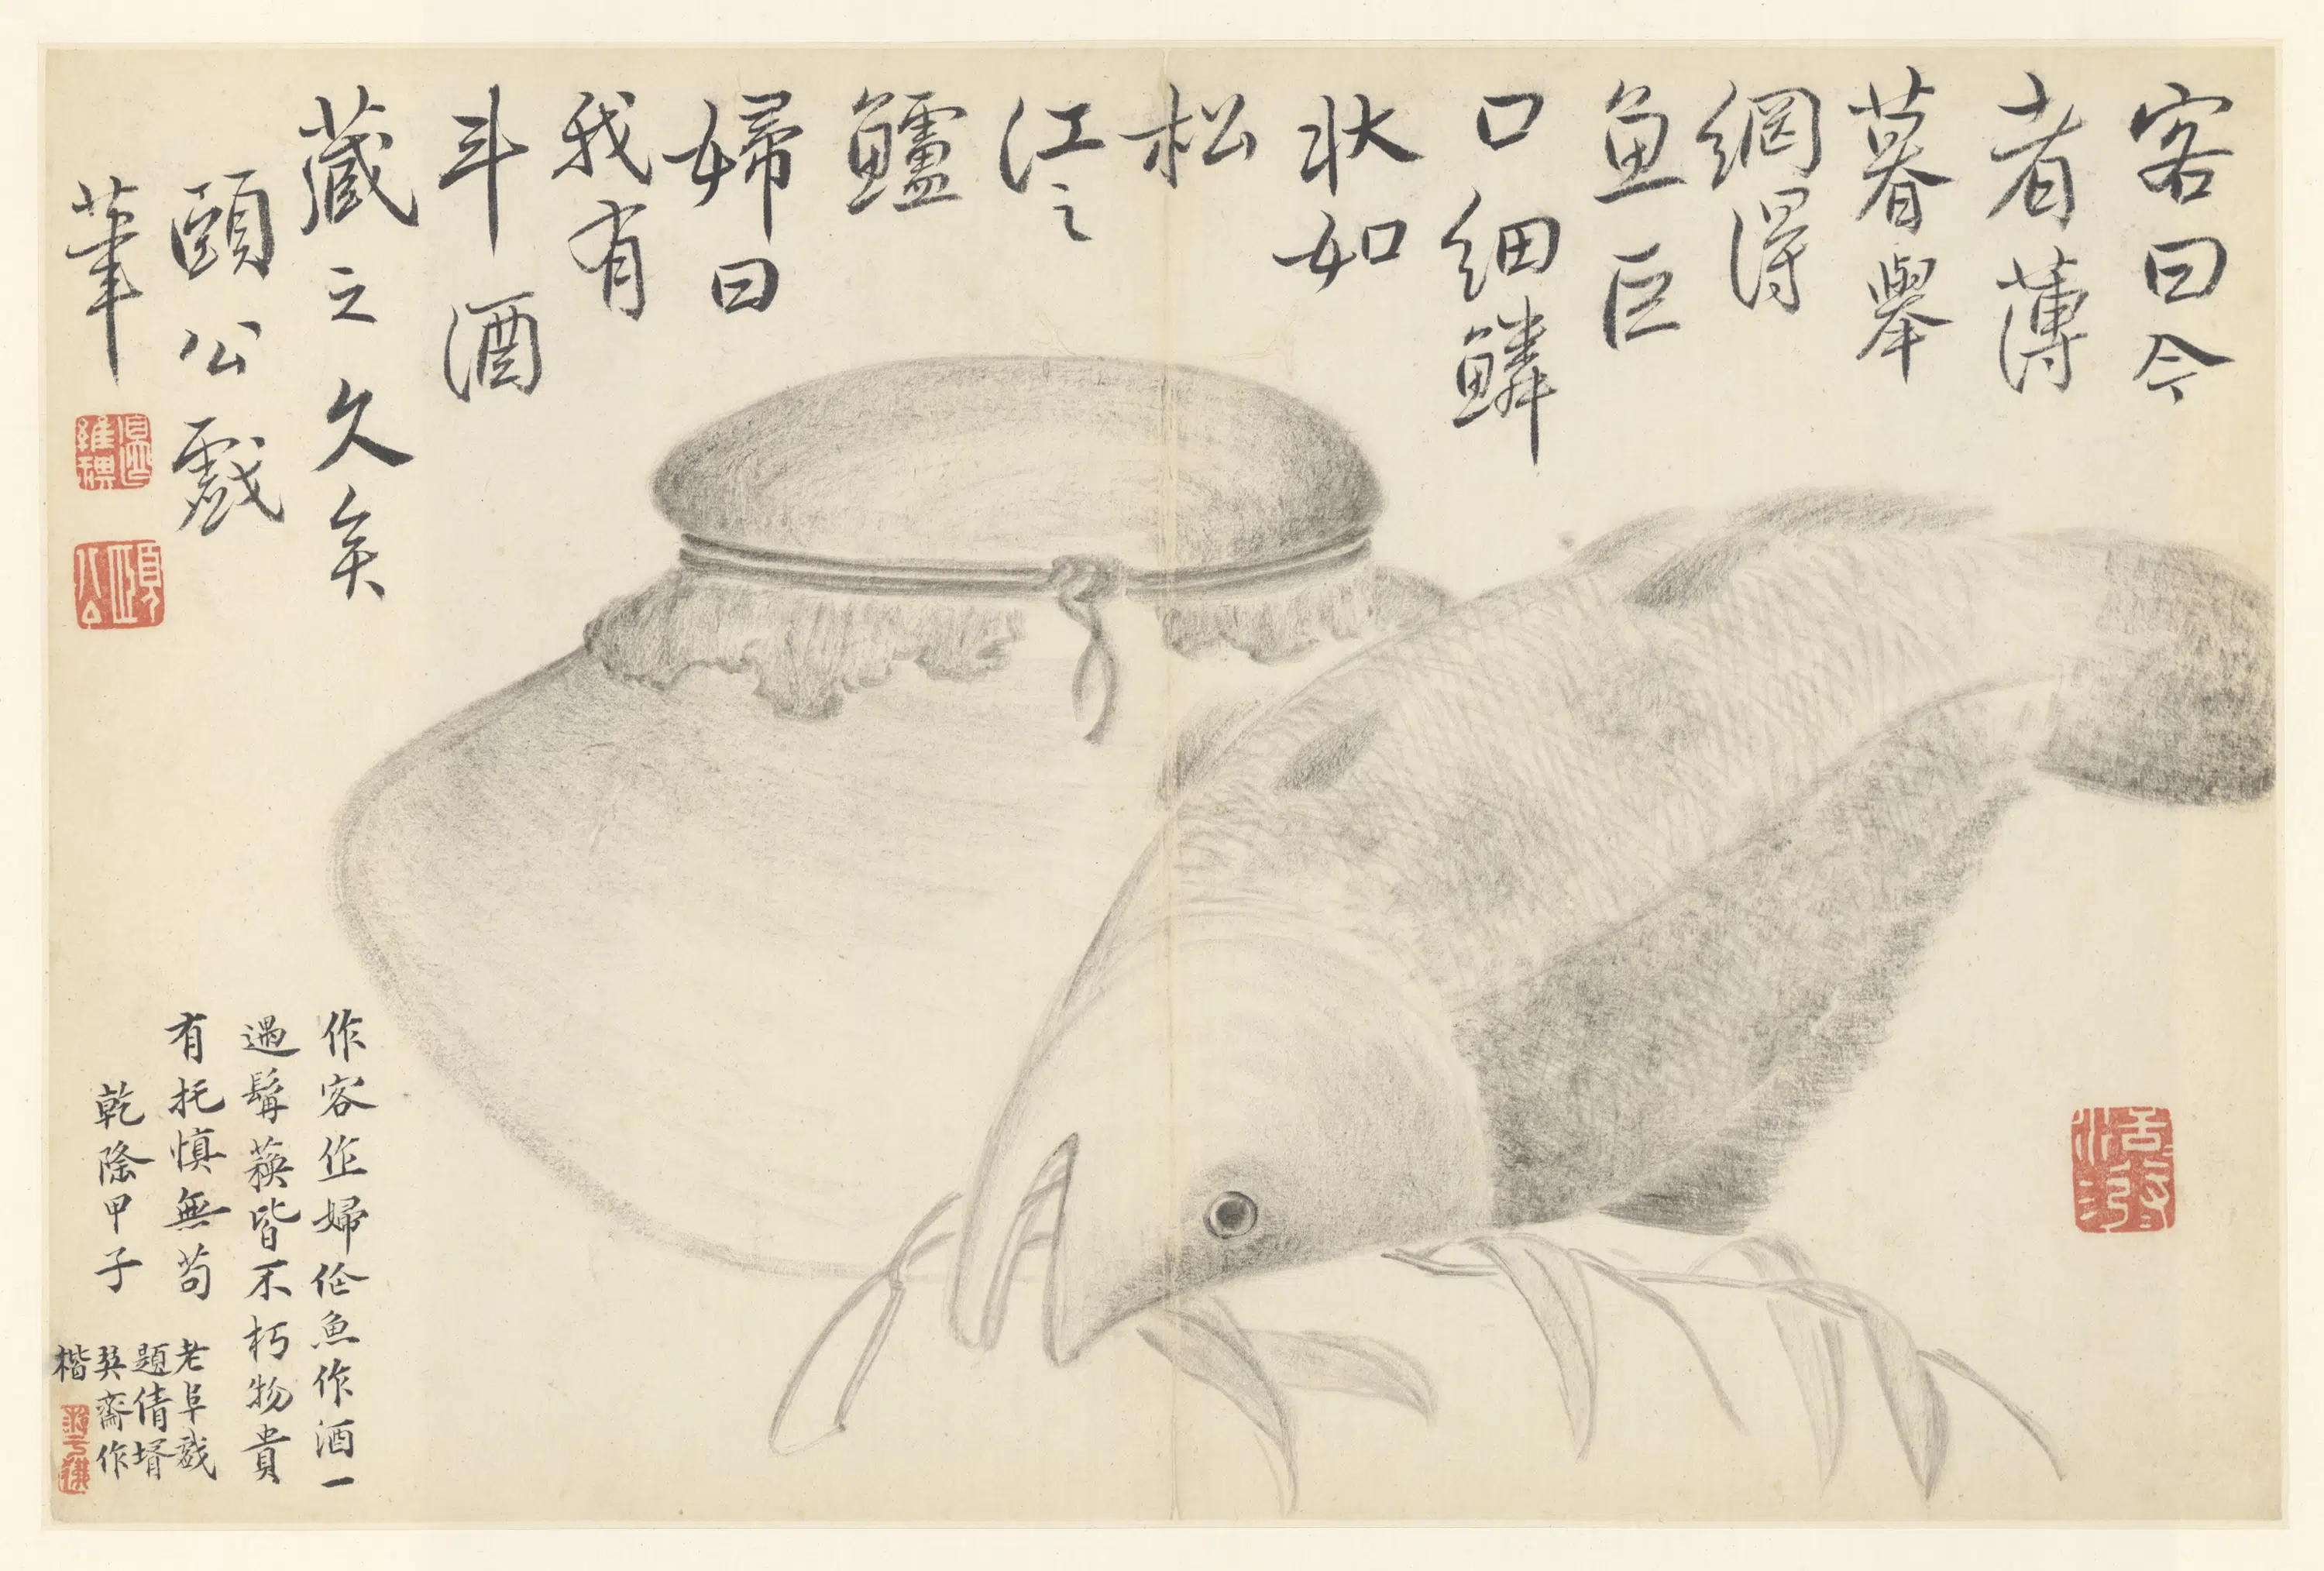 客曰今
者薄
暮舉
網得
魚巨
口細鱗
狀如
松
江之
鱸
婦曰
我有
斗酒
藏之久矣
頤公戲
筆
頤公
作客作婦作魚作酒一
過髯蘓皆不朽物貴
有托慎無苟
乾隆甲子
老阜戲
題倩壻
巽齋作
楷